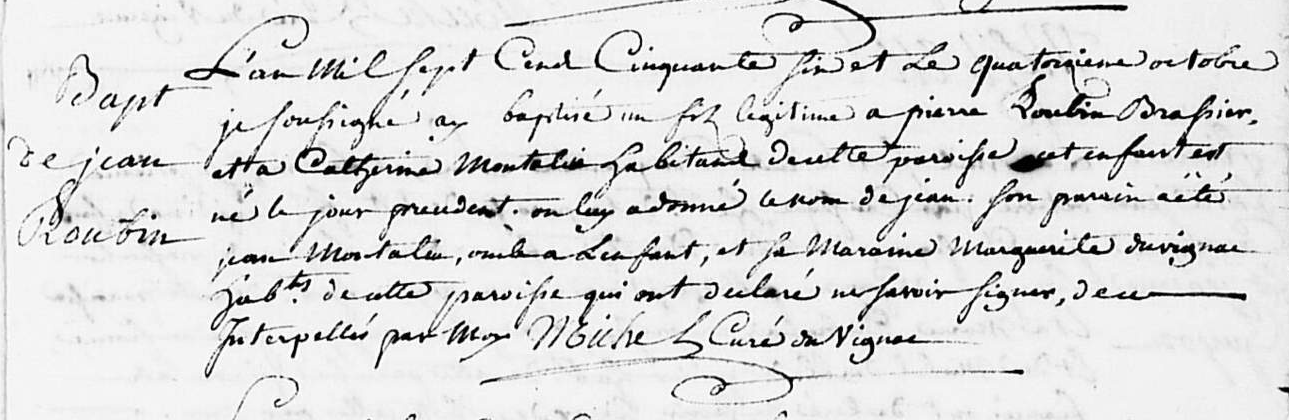 Bapt
de jean
Roubin
L'an Mil sept Cent Cinquante sin et Le quatorzieme octobre
je soussigné ay baptisé un fils legitime a pierre Roubin Brassier,
et a Catherine Montalie habitans de cette paroisse cet enfant est
né le jour precedent. on luy a donné le nom de jean. son parein a été
jean Montalie, oncle a L'enfant, et sa Mareine Marguerite duvignac
hab.ts de cette paroisse qui ont declaré ne savoir signer, de ce
Interpellés par Moy Michel Curé du Vignac